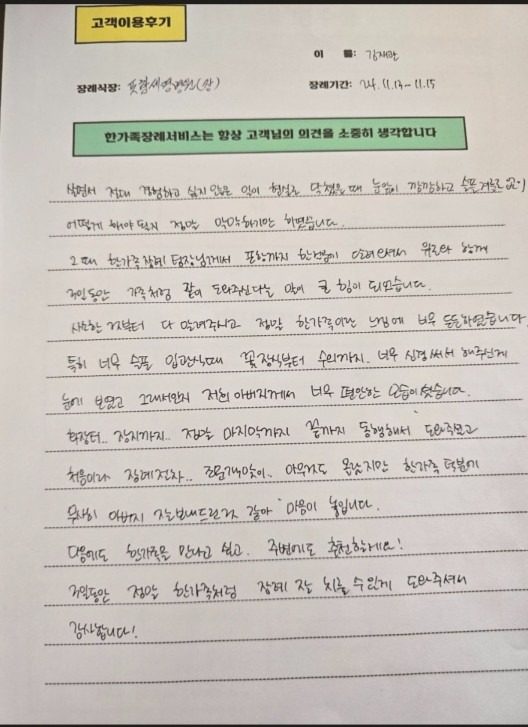 고객이용후기
이 름: 김재만
장례식장: 포항세명병원(장)
장례기간: 24. 11. 13 ~ 11. 15
한가족장례서비스는 항상 고객님의 의견을 소중히 생각합니다
살면서 절대 경험하고 싶지 않은 일이 현실로 닥쳤을때 눈앞이 깜깜하고 슬픔
어떻게 해야 될지 정말 막막하기만 하였습니다.
그때 한가족장례 팀장님께서 포항까지 한걸음에 달려오셔서 위로와 함께
3일동안 가족처럼 같이 도와주신다는 말이 큰 힘이 되었습니다.
사소한 것부터 다 챙겨주시고 정말 한가족이란 느낌에 너무 든든하였습니다
특히 너무 슬픈 입관식때 꽃장식부터 수의까지.. 너무 신경써서 해주신게
눈에 보였고 그래서인지 저희 아버지께서 너무 편안한 모습이셨습니다.
화장터.. 장지까지.. 정말 마지막까지 끝까지 동행해서 도와주시고
처음이라 장례절차.. 조문객맞이.. 아무것도 몰랐지만 한가족 덕분에
무사히 아버지 잘보내드린거 같아 마음이 놓입니다.
다음에도 한가족을 만나고 싶고. 주변에도 추천할게요!
3일동안 정말 한가족처럼 장례 잘 치를 수 있게 도와주셔서
감사합니다!